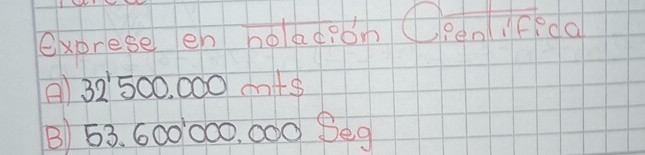 Exprese en notación Científica
A) 32'500.000 mts
B) 53.600'000.000 Seg